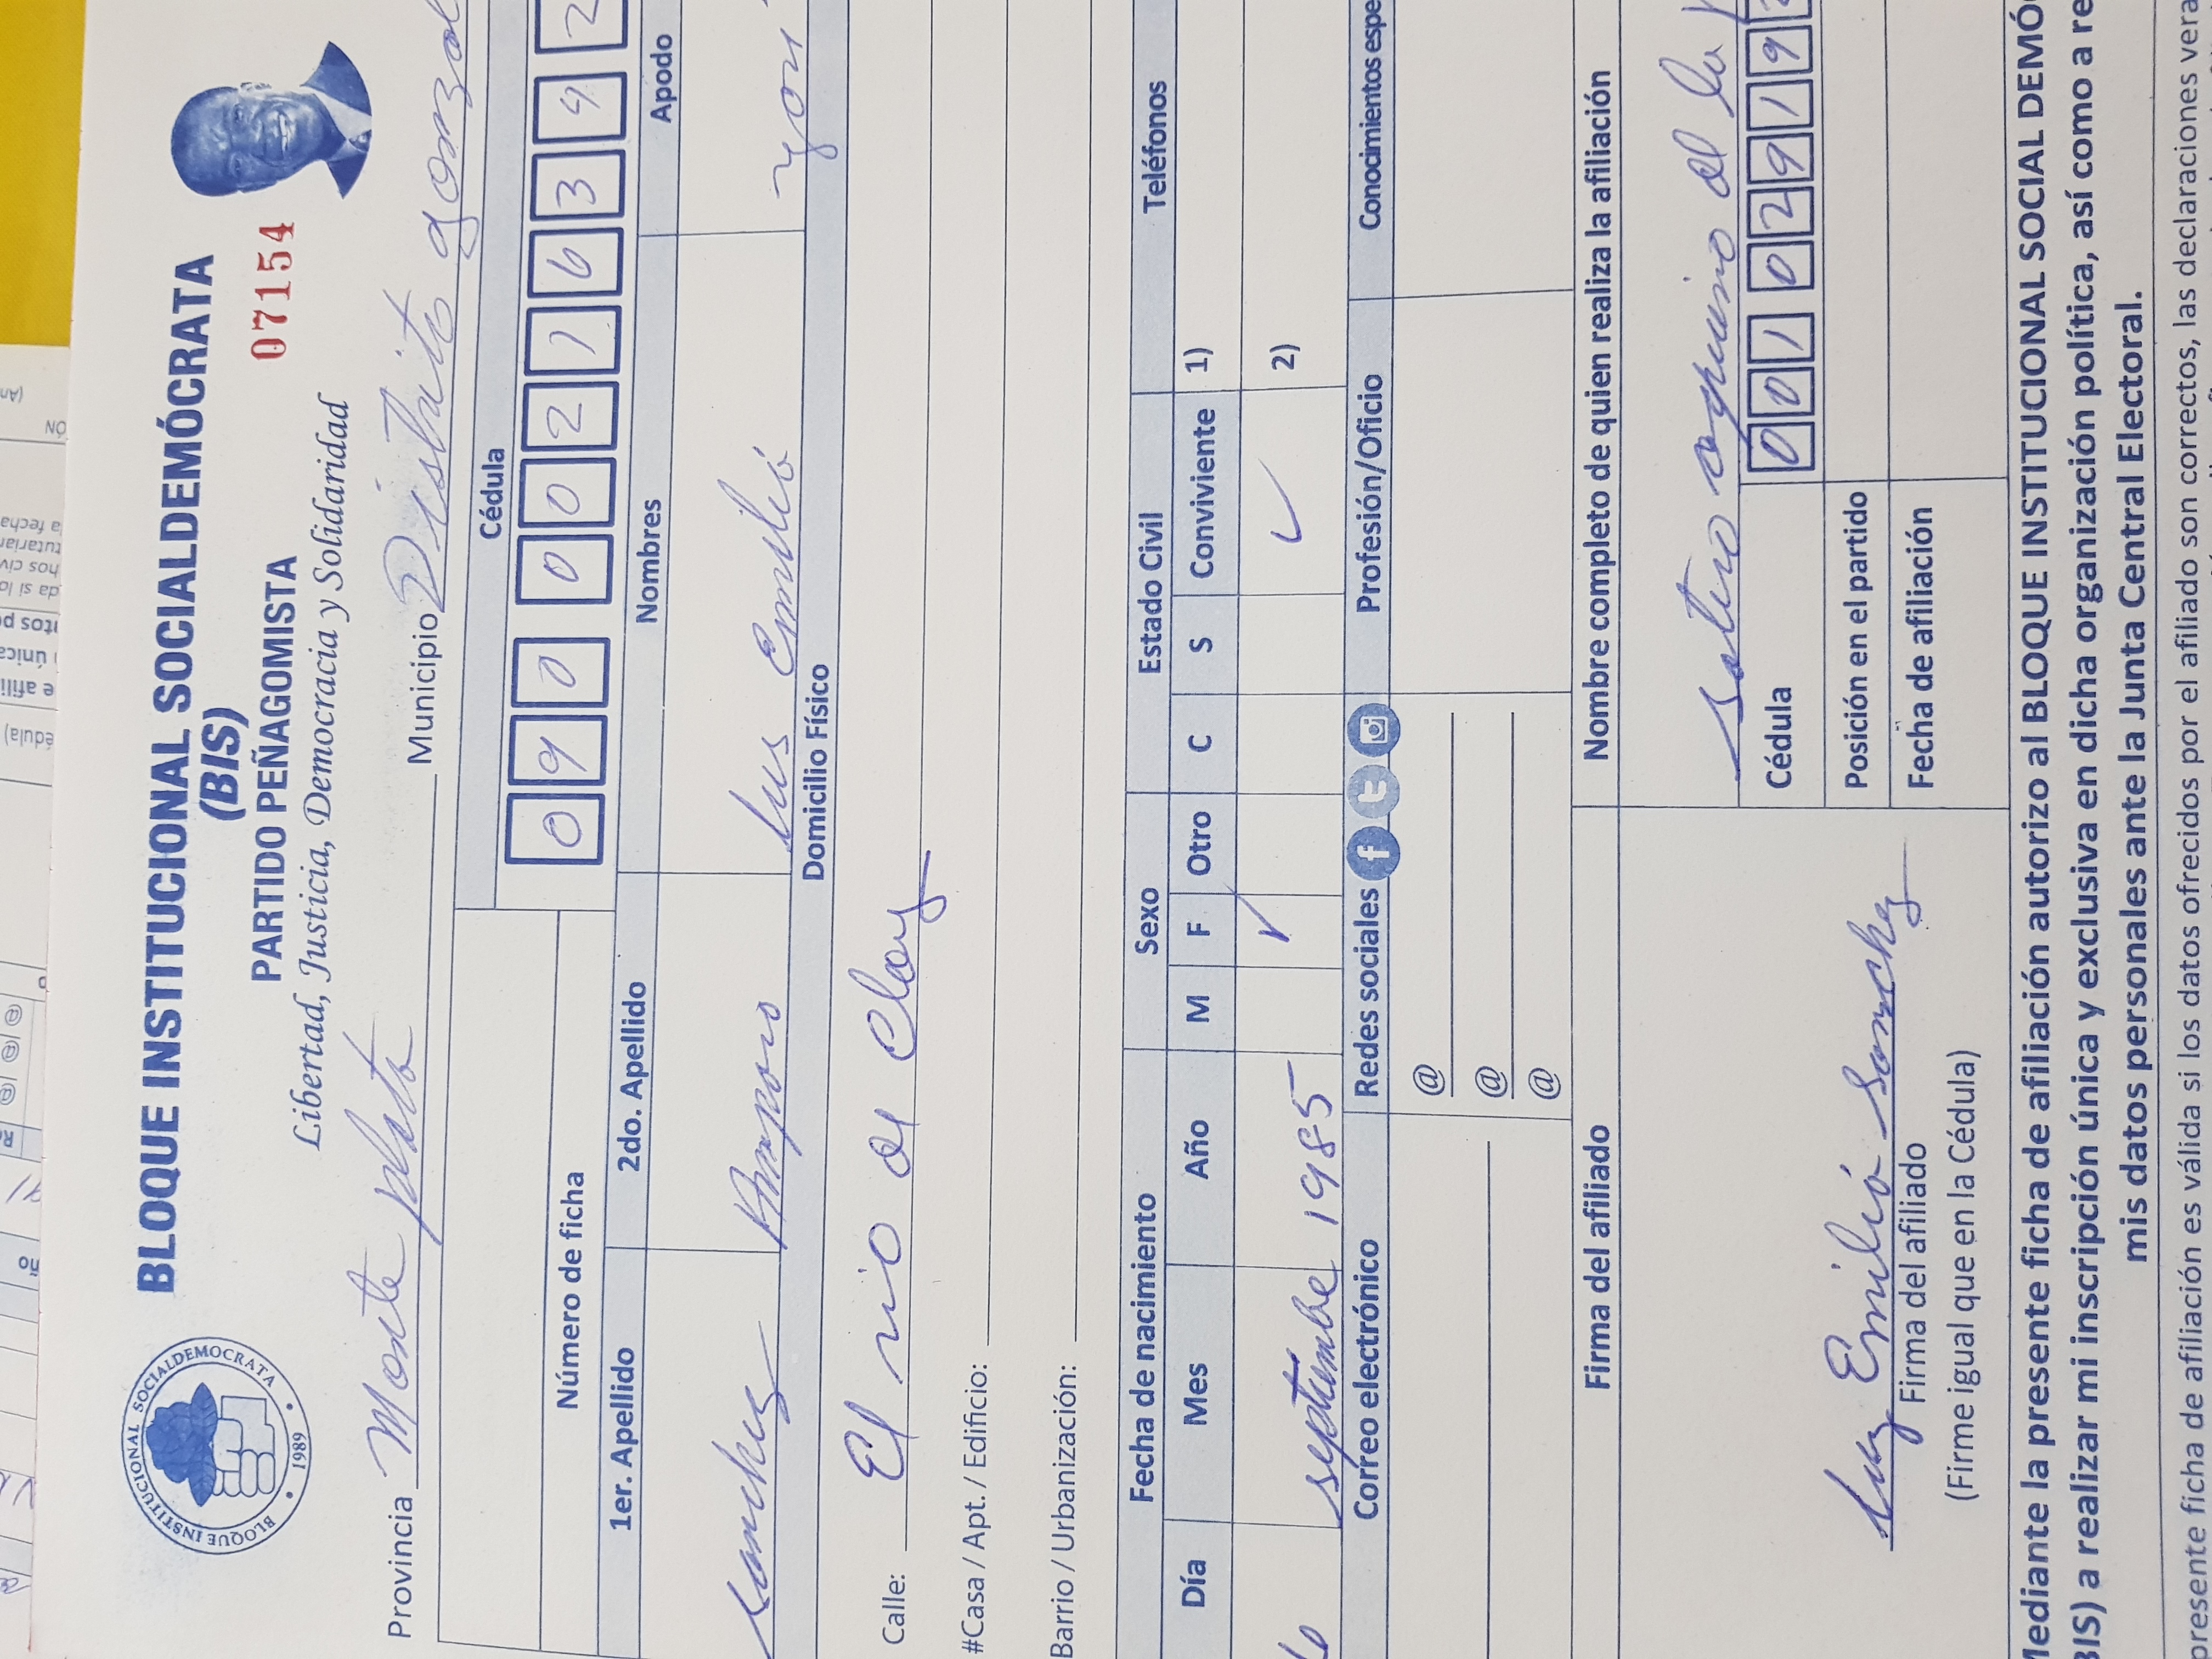 BLOQUE INSTITUCIONAL SOCIALDEMÓCRATA
(BIS)
PARTIDO PEÑAGOMISTA
07154
Libertad, Justicia, Democracia y Solidaridad
BLOQUE INSTITUCIONAL SOCIALDEMOCRATA
1989
Provincia Monte plata Municipio Distrito gonzal
Cédula
Número de ficha
0 9 0 0 0 2 1 6 3 9 2
1er. Apellido 2do. Apellido Nombres Apodo
Sanchez Amparo Luis Emilio yoni
Domicilio Físico
Calle: El rio de Cloy
#Casa / Apt. / Edificio:
Barrio / Urbanización:
Fecha de nacimiento Sexo Estado Civil Teléfonos
Día Mes Año M F Otro C S Conviviente 1)
septiembre 1985 ✓ ✓ 2)
Correo electrónico Redes sociales Profesión/Oficio Conocimientos espe
@
@
@
Firma del afiliado Nombre completo de quien realiza la afiliación
de la
Cédula 0 0 1 0 2 9 1 9
Posición en el partido
Fecha de afiliación
Luis Emilio Sanchez
Firma del afiliado
(Firme igual que en la Cédula)
Mediante la presente ficha de afiliación autorizo al BLOQUE INSTITUCIONAL SOCIAL DEMÓ
BIS) a realizar mi inscripción única y exclusiva en dicha organización política, así como a re
mis datos personales ante la Junta Central Electoral.
presente ficha de afiliación es válida si los datos ofrecidos por el afiliado son correctos, las declaraciones vera